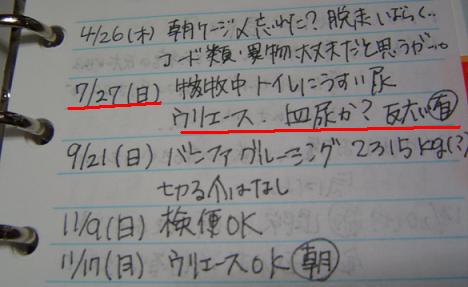 4/26(木) 朝ケージ〆忘れた?脱走いばらく‥
コード類・異物大丈夫だと思うが…。
7/27(日) 放牧中トイレにうすい尿
ウリエース・血尿か? 反応(有)
9/21(日) バニファグルーミング 2315kg(?)
切る爪はなし
11/9(日) 検便OK
11/17(月) ウリエースOK (朝)